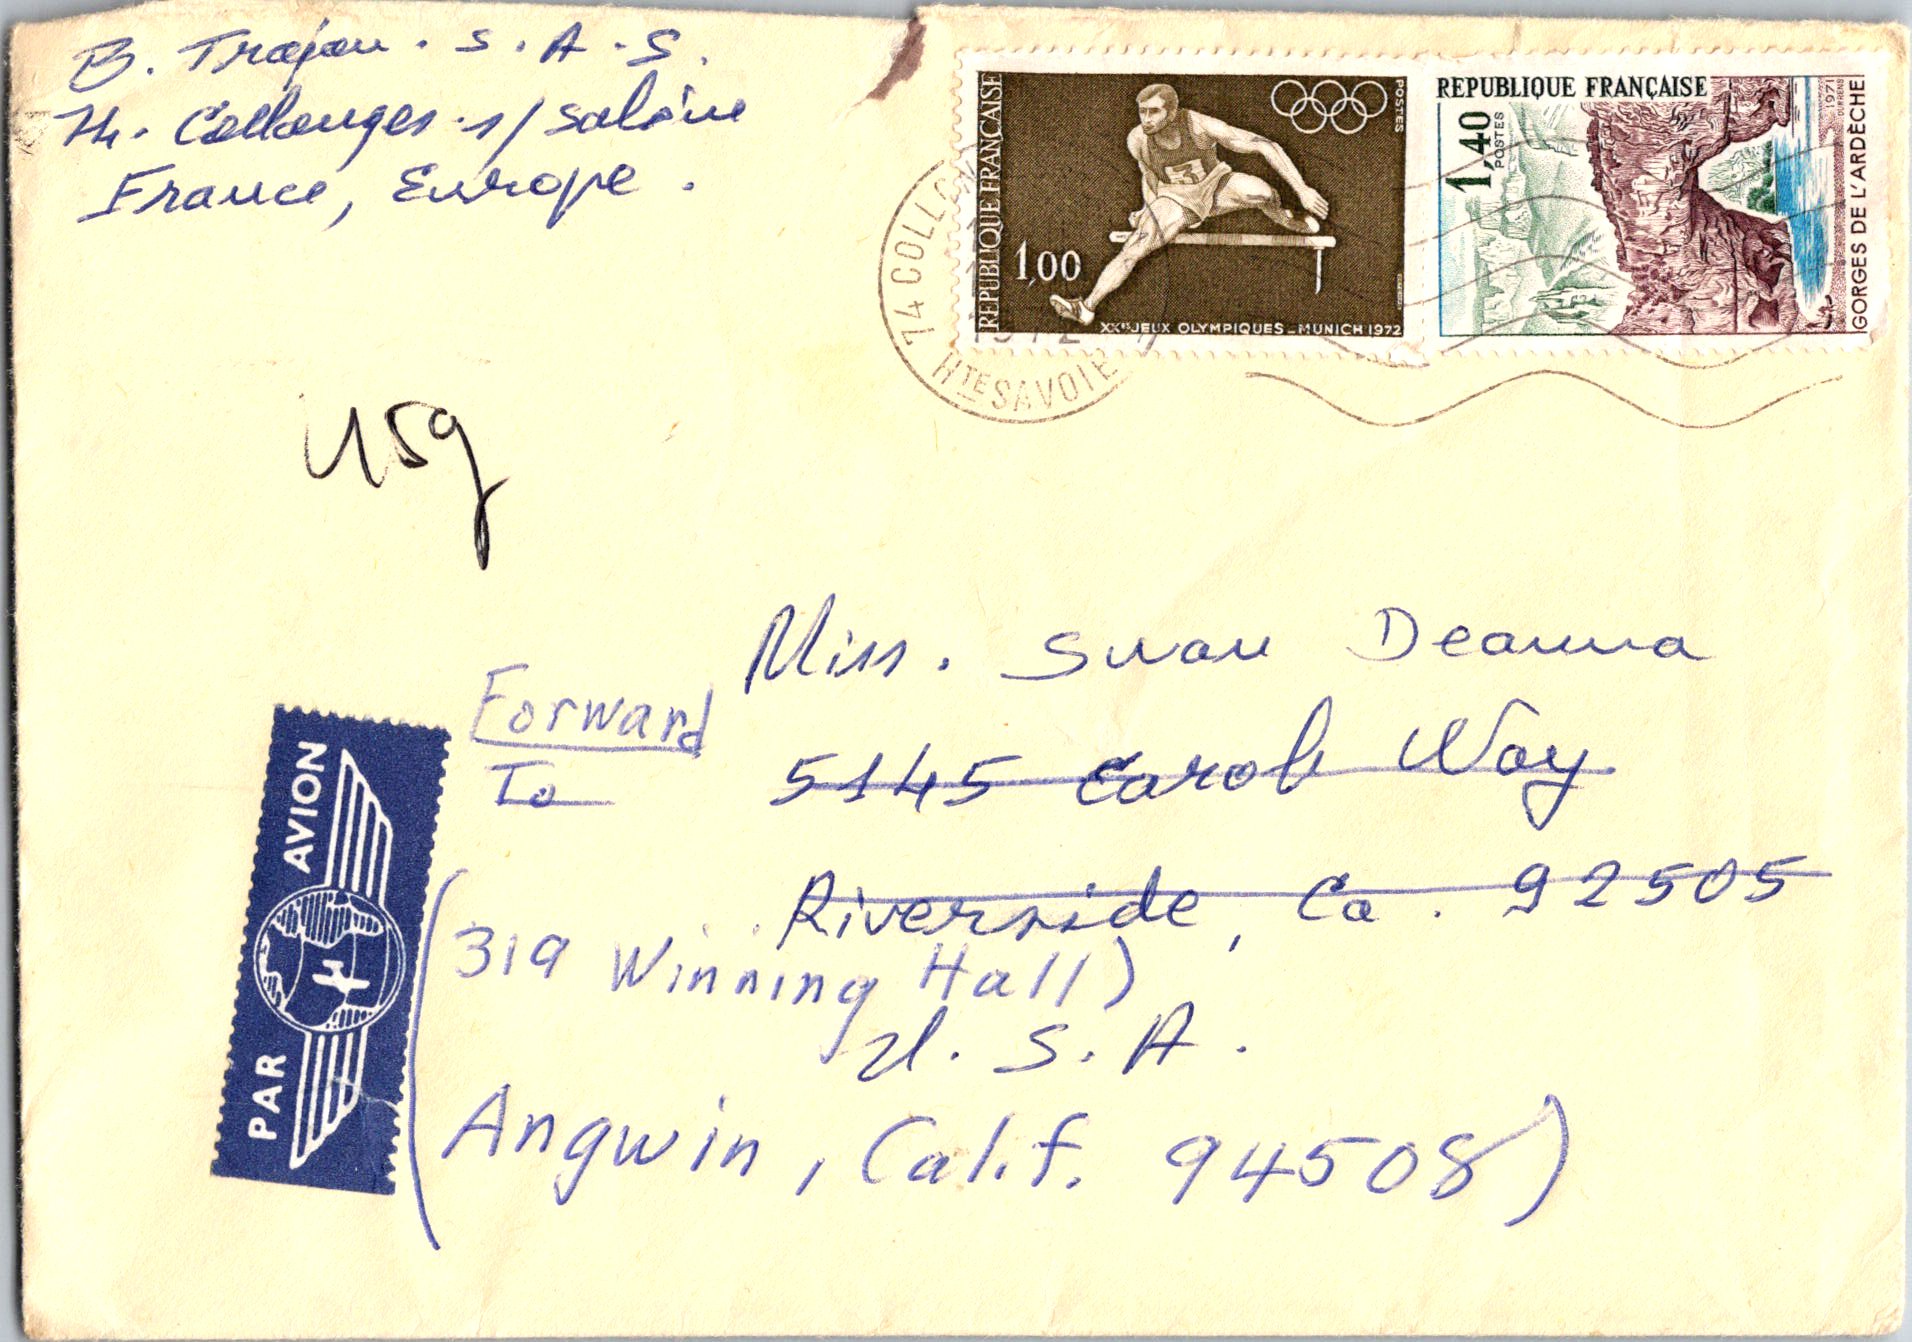 B. Trajan. S. A. S.
74. Collonges. s/ Salève
France, Europe.
REPUBLIQUE FRANÇAISE
1,00
POSTES
XXES JEUX OLYMPIQUES _ MUNICH 1972
REPUBLIQUE FRANÇAISE
1,40
POSTES
1971
GORGES DE L'ARDÈCHE
74 COLLON
1972
HTE SAVOIE
15g
Miss. Swan Deanna
Forward
To
5145 Carob Way
Riverside, Ca. 92505
(319 Winning Hall)
U. S. A.
Angwin, Calif. 94508)
PAR AVION